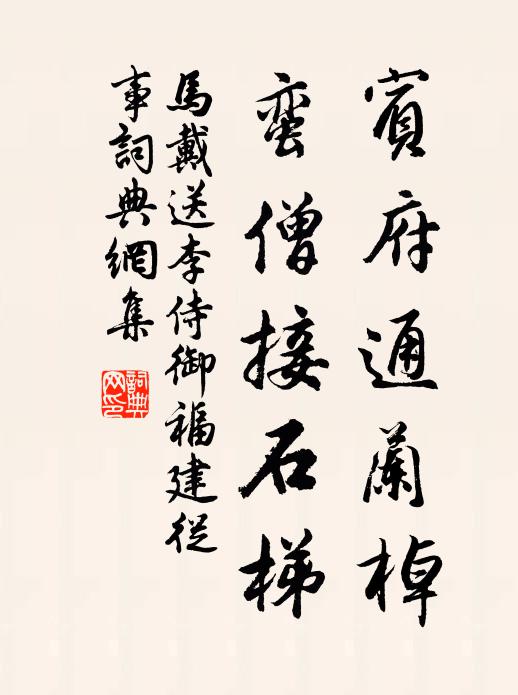 賓府通蘭棹
蛮僧接石梯
馬戴送李侍御福建從
事詞典網集
詞典
网印